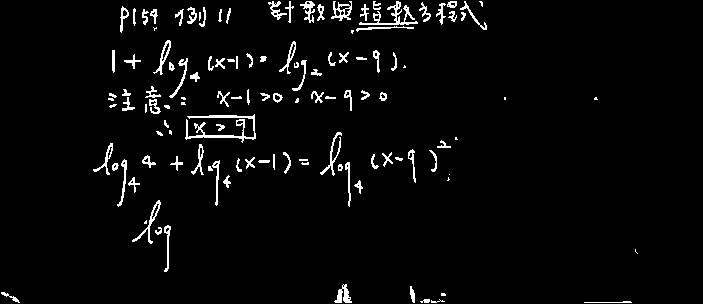 P159 例11 對數與指數方程式
1 + log₄(x-1) = log₂(x-9).
注意: x-1>0, x-9>0
∴ x>9
log₄4 + log₄(x-1) = log₄(x-9)².
log